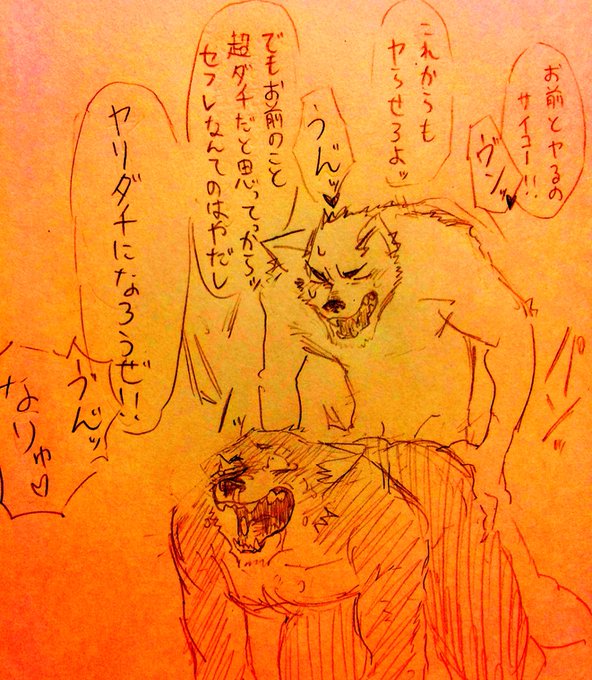 お前とヤるの
サイコー!!
ヴンッ♥
これからも
ヤらせろよッ
うんッ♥
でもお前のこと
超ダチだと思ってっからッ
セフレなんてのはやだし
ヤリダチになろうぜ!!
うんッ
なりゅ♡
パンッ